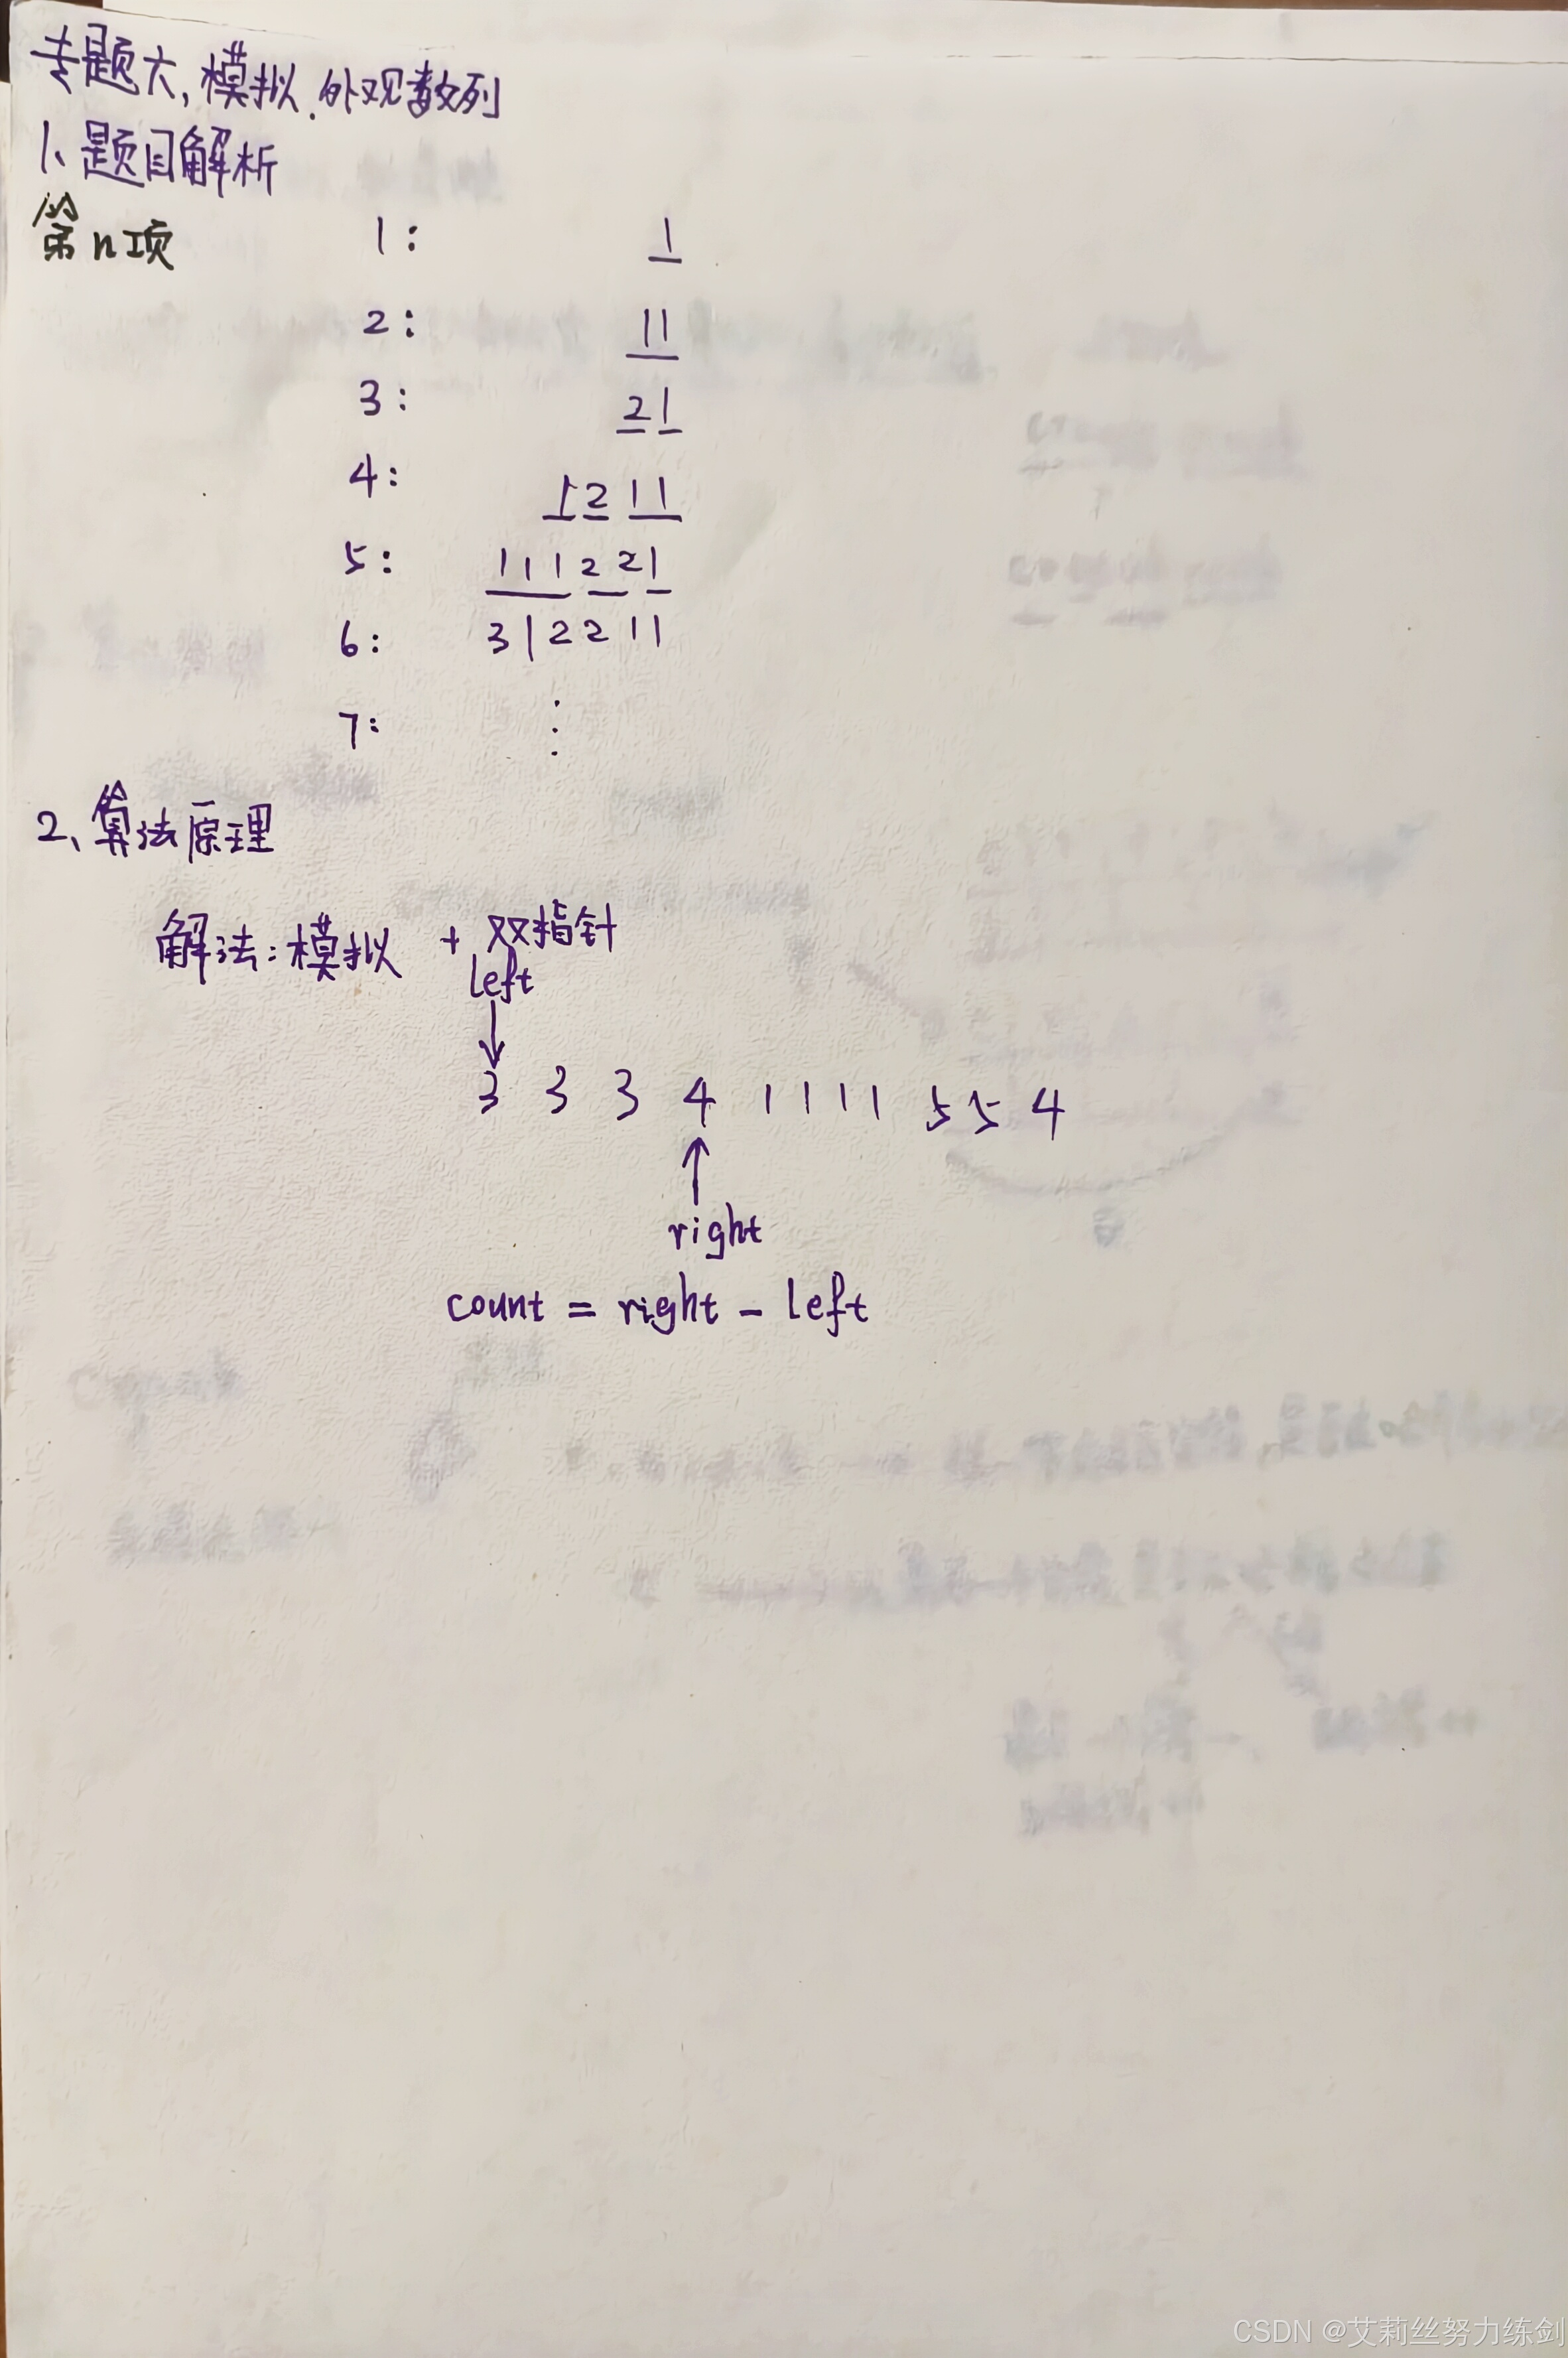 专题六,模拟.外观数列
1、题目解析
第n项 1: 1
2: 11
3: 21
4: 1211
5: 111221
6: 312211
7: ⋮
2、算法原理
解法:模拟 + 双指针
left
3 3 3 4 1 1 1 1 5 5 4
right
count = right - left
CSDN @艾莉丝努力练剑